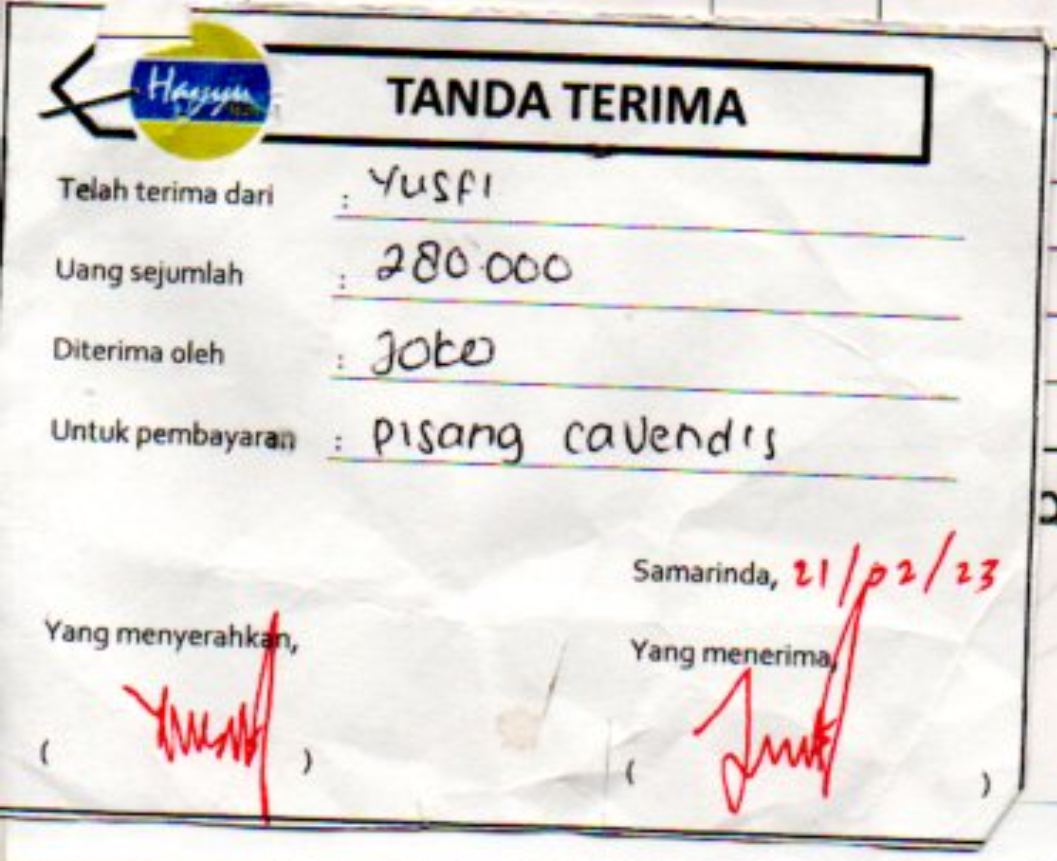 Hayyu
TANDA TERIMA
Telah terima dari : Yusfi
Uang sejumlah : 280.000
Diterima oleh : Joko
Untuk pembayaran : pisang cavendis
Samarinda, 21/02/23
Yang menyerahkan,
Yang menerima,
( )
( )